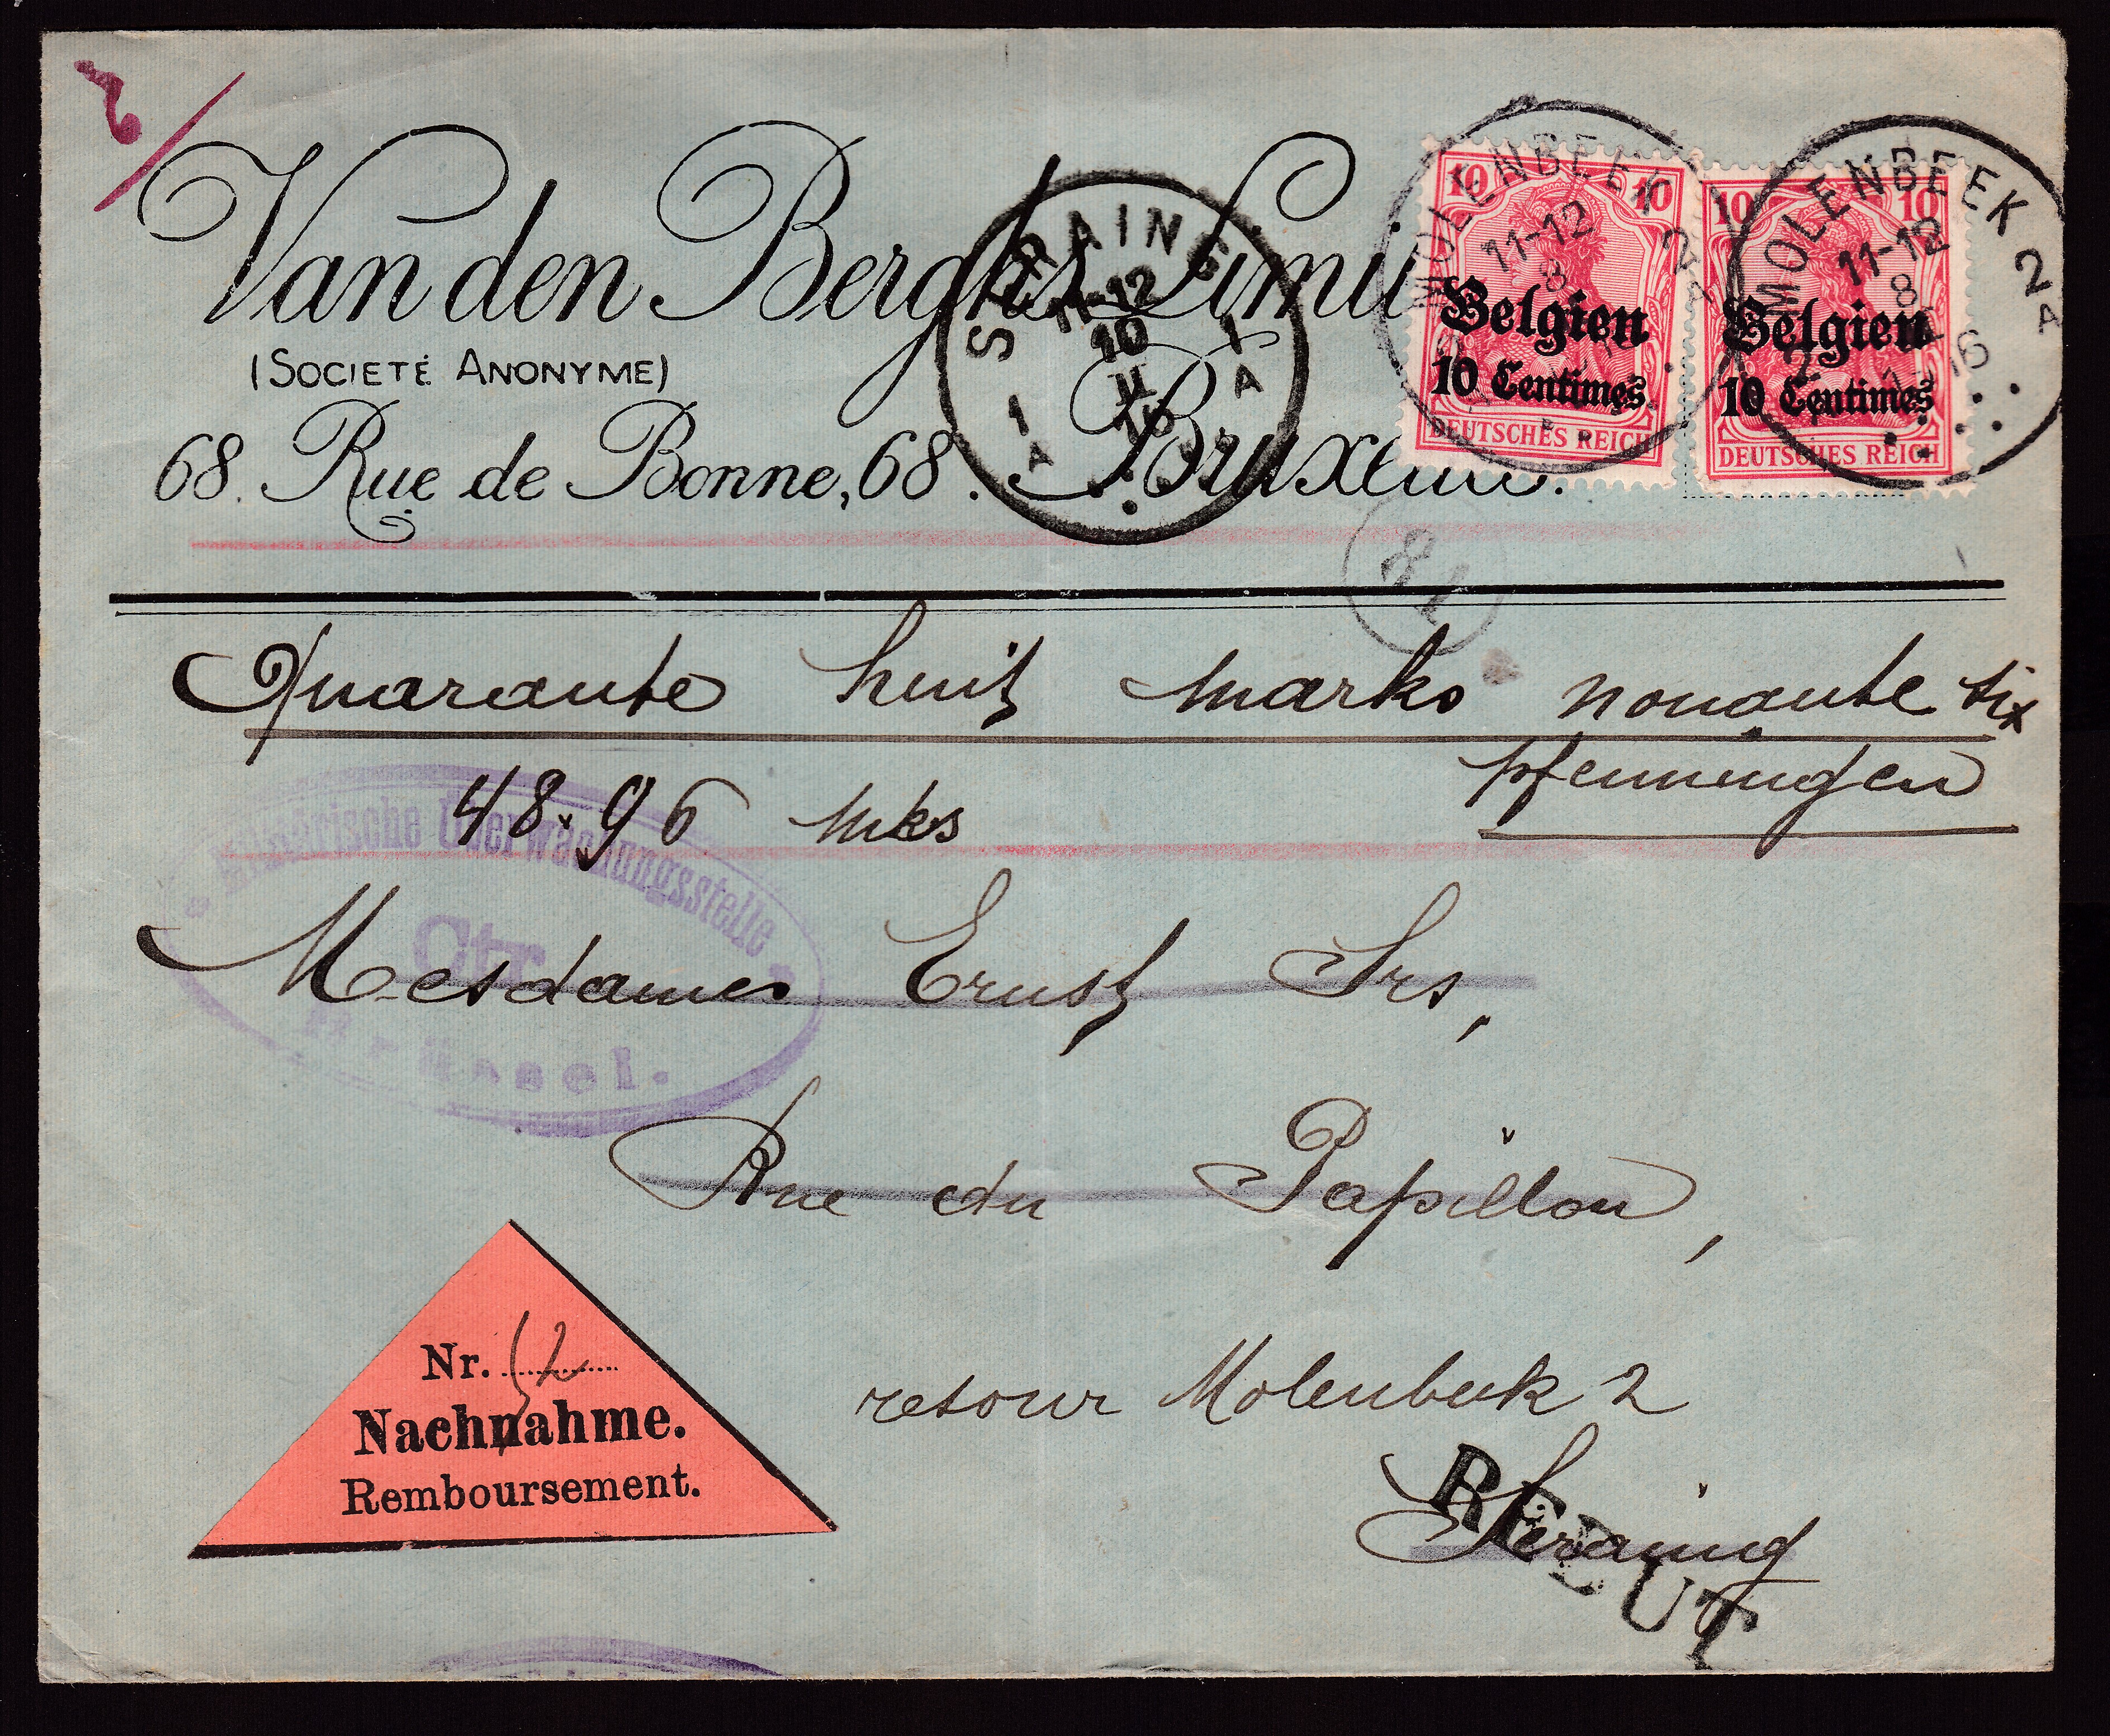 Van den Berghs Limi
(SOCIETÉ ANONYME)
68. Rue de Bonne, 68. Bruxelles.
SERAING
11-12
10
II
16
1 A
1 A
MOLENBEEK
11-12
8
2 A
10 10
Belgien
10 Centimes
DEUTSCHES REICH
MOLENBEEK 2 A
11-12
8
16
10 10
Belgien
10 Centimes
DEUTSCHES REICH
Quarante huit marks nonante six
pfenningen
48.96 mks
Militärische Überwachungsstelle
Ctr.
Mesdames Ernst Srs,
Rue du Papillon,
Nr. 52
Nachnahme.
Remboursement.
retour Molenbeek 2
Seraing
REBUT